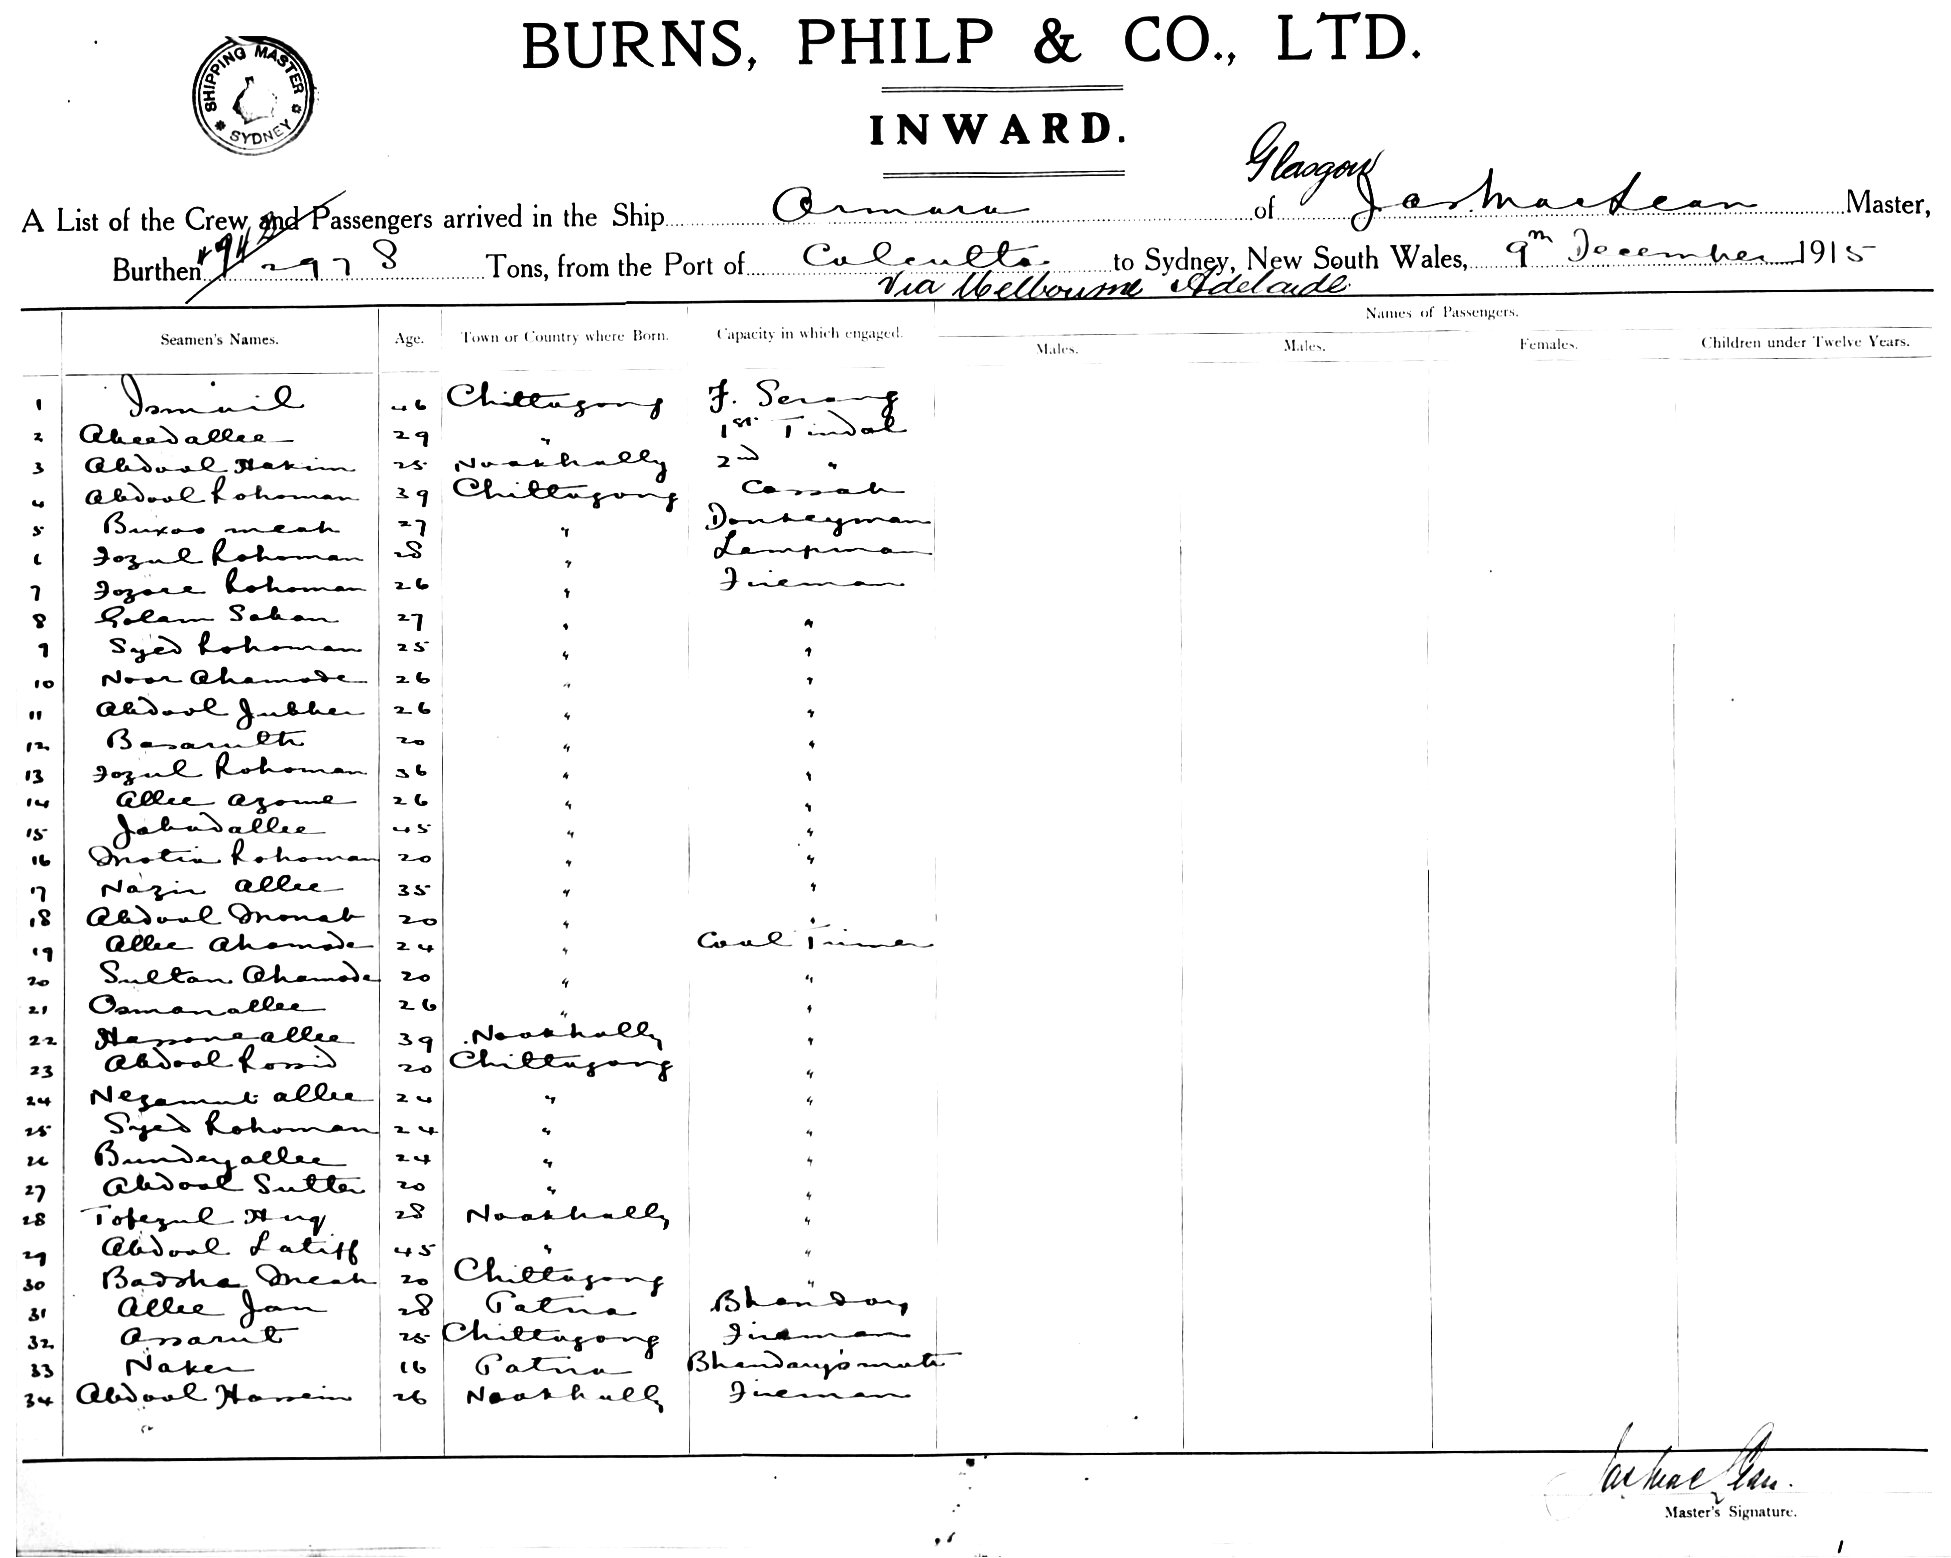 BURNS, PHILP & CO., LTD.
SHIPPING MASTER SYDNEY
INWARD.
A List of the Crew and Passengers arrived in the Ship Ormara of Glasgow Jas. MacLean Master,
Burthen 2978 Tons, from the Port of Calcutta to Sydney, New South Wales, 9th December 1915
Via Melbourne Adelaide
Seamen's Names. Age. Town or Country where Born. Capacity in which engaged. Names of Passengers.
Males. Males. Females. Children under Twelve Years.
1 Ismail 46 Chittagong F. Serang
2 Abeedallee 29 " 1st Tindal
3 Abdool Hakim 25 Noakhally 2nd "
4 Abdool Rohoman 39 Chittagong Cassab
5 Buxoo meah 27 " Donkeyman
6 Fozul Rohoman 28 " Lampman
7 Fozore Rohoman 26 " Fireman
8 Golam Soban 27 " "
9 Syed Rohoman 25 " "
10 Noor Ahamode 26 " "
11 Abdool Jubber 26 " "
12 Basarulth 20 " "
13 Fozul Rohoman 36 " "
14 Allee Azome 26 " "
15 Jabadallee 45 " "
16 Motia Rohoman 20 " "
17 Nazir Allee 35 " "
18 Abdool Monab 20 " "
19 Allee Ahamode 24 " Coal Trimer
20 Sultan Ahamode 20 " "
21 Osmanallee 26 " "
22 Hassoneallee 39 Noakhally "
23 Abdool Rossid 20 Chittagong "
24 Negamut allee 24 " "
25 Syed Rohoman 24 " "
26 Bundeyallee 24 " "
27 Abdool Sutter 20 " "
28 Tofezul Huq 28 Noakhally "
29 Abdool Latiff 45 " "
30 Badsha Meah 20 Chittagong "
31 Allee Jan 28 Patna Bhandary
32 Assarut 25 Chittagong Fireman
33 Naker 16 Patna Bhandary's mate
34 Abdool Hossein 26 Noakhally Fireman
Jas MacLean.
Master's Signature.